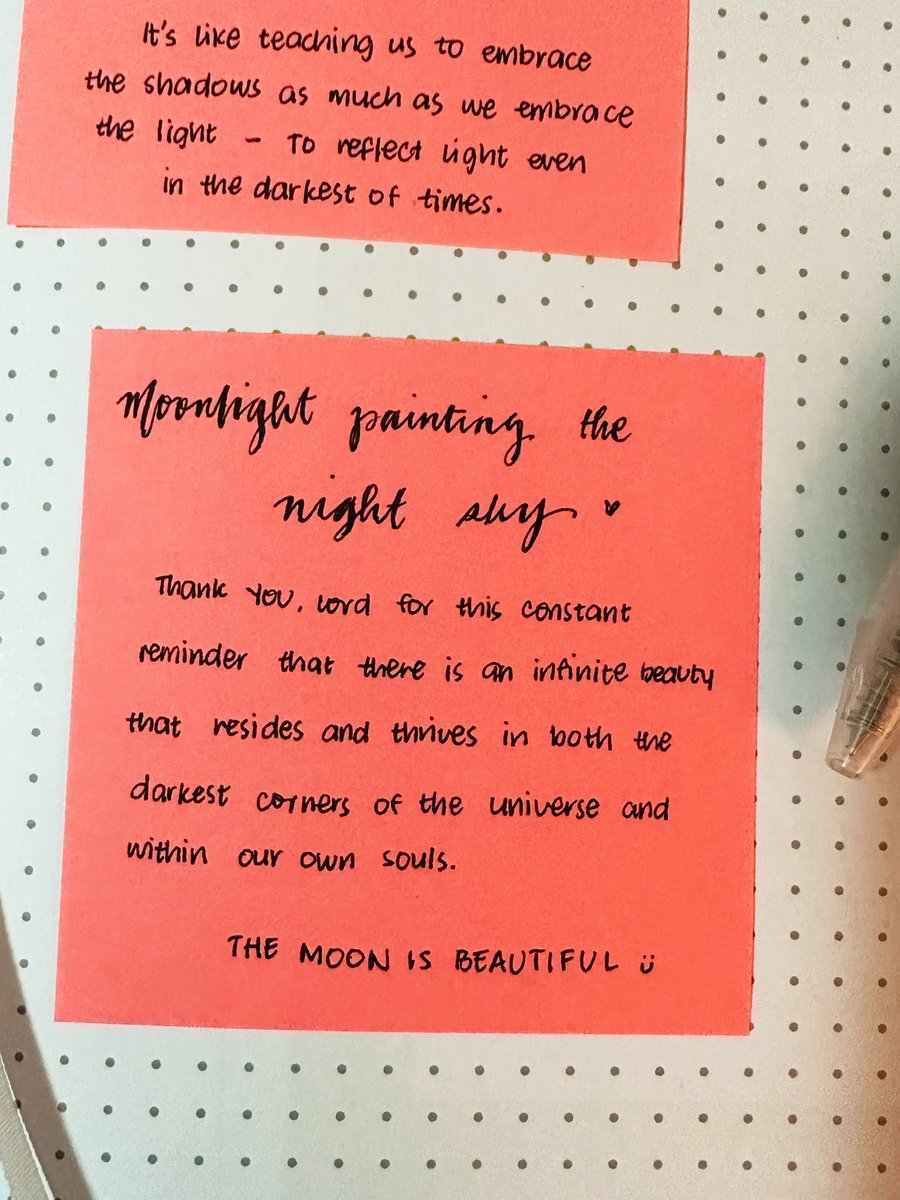 It's like teaching us to embrace
the shadows as much as we embrace
the light - To reflect light even
in the darkest of times.
Moonlight painting the
night sky ♥
Thank You, Lord for this constant
reminder that there is an infinite beauty
that resides and thrives in both the
darkest corners of the universe and
within our own souls.
THE MOON IS BEAUTIFUL ü